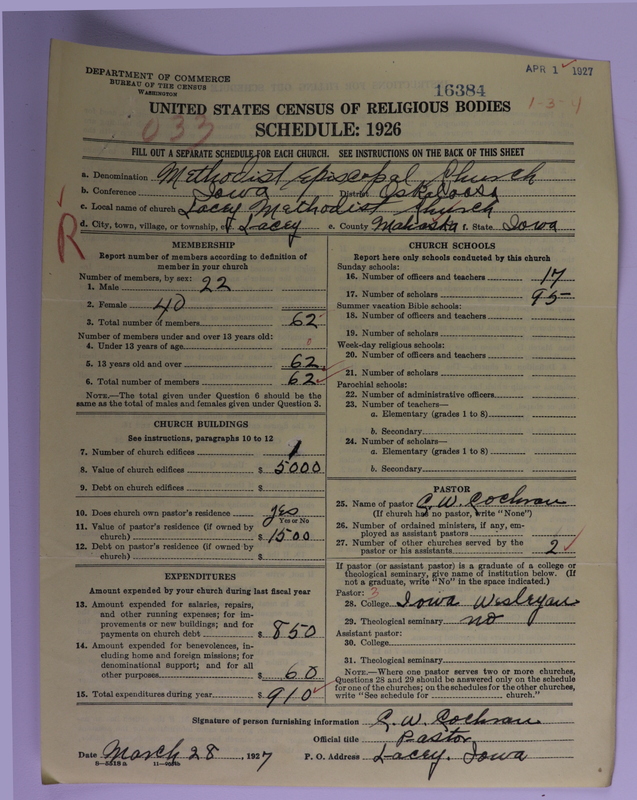 DEPARTMENT OF COMMERCE
BUREAU OF THE CENSUS
WASHINGTON
APR 1 1927
16384
1-3-4
UNITED STATES CENSUS OF RELIGIOUS BODIES
033
SCHEDULE: 1926
FILL OUT A SEPARATE SCHEDULE FOR EACH CHURCH. SEE INSTRUCTIONS ON THE BACK OF THIS SHEET
a. Denomination Methodist Episcopal Church
b. Conference Iowa District Oskaloosa
c. Local name of church Lacey Methodist Church
d. City, town, village, or township, etc. Lacey e. County Mahaska f. State Iowa
R
MEMBERSHIP
Report number of members according to definition of
member in your church
Number of members, by sex:
1. Male 22
2. Female 40
3. Total number of members 62
Number of members under and over 13 years old:
4. Under 13 years of age 0
5. 13 years old and over 62
6. Total number of members 62
NOTE.—The total given under Question 6 should be the
same as the total of males and females given under Question 3.
CHURCH BUILDINGS
See instructions, paragraphs 10 to 12
7. Number of church edifices 1
8. Value of church edifices $ 5000
9. Debt on church edifices $
10. Does church own pastor's residence yes
Yes or No
11. Value of pastor's residence (if owned by
church) $ 1500
12. Debt on pastor's residence (if owned by
church) $
EXPENDITURES
Amount expended by your church during last fiscal year
13. Amount expended for salaries, repairs,
and other running expenses; for im-
provements or new buildings; and for
payments on church debt $ 850
14. Amount expended for benevolences, in-
cluding home and foreign missions; for
denominational support; and for all
other purposes $ 60
15. Total expenditures during year $ 910
CHURCH SCHOOLS
Report here only schools conducted by this church
Sunday schools:
16. Number of officers and teachers 17
17. Number of scholars 95
Summer vacation Bible schools:
18. Number of officers and teachers
19. Number of scholars
Week-day religious schools:
20. Number of officers and teachers
21. Number of scholars
Parochial schools:
22. Number of administrative officers
23. Number of teachers—
a. Elementary (grades 1 to 8)
b. Secondary
24. Number of scholars—
a. Elementary (grades 1 to 8)
b. Secondary
PASTOR
25. Name of pastor C. W. Cochran
(If church has no pastor, write "None")
26. Number of ordained ministers, if any, em-
ployed as assistant pastors
27. Number of other churches served by the
pastor or his assistants 2
If pastor (or assistant pastor) is a graduate of a college or
theological seminary, give name of institution below. (If
not a graduate, write "No" in the space indicated.)
Pastor: 3
28. College Iowa Wesleyan
29. Theological seminary no
Assistant pastor:
30. College
31. Theological seminary
NOTE.—Where one pastor serves two or more churches,
Questions 28 and 29 should be answered only on the schedule
for one of the churches; on the schedules for the other churches,
write "See schedule for church."
Signature of person furnishing information C. W. Cochran
Official title Pastor
Date March 28, 1927 P. O. Address Lacey, Iowa